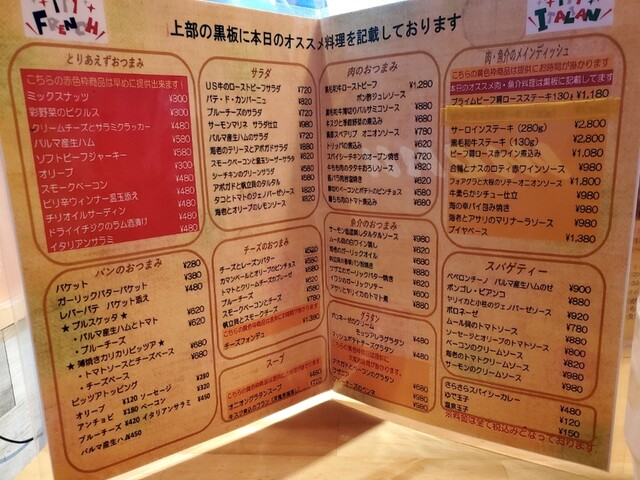 FRENCH
上部の黒板に本日のオススメ料理を記載しております
ITALIAN
とりあえずおつまみ
こちらの赤色枠商品は早めに提供出来ます!
ミックスナッツ ¥300
彩野菜のピクルス ¥300
クリームチーズとサラミクラッカー ¥480
パルマ産生ハム ¥580
ソフトビーフジャーキー ¥580
オリーブ ¥300
スモークベーコン ¥480
ピリ辛ウィンナー温玉添え ¥480
チリオイルサーディン ¥480
ドライイチジクのラム酒漬け ¥480
イタリアンサラミ ¥480
パンのおつまみ
バケット ¥280
ガーリックバターバケット ¥380
レバーパテ バケット添え ¥480
★ブルスケッタ★
・パルマ産生ハムとトマト ¥620
・ブルーチーズ ¥620
★薄焼きカリカリピッツァ★
・トマトソースとチーズベース ¥680
・チーズベース ¥680
ピッツァトッピング
オリーブ ¥120 ソーセージ ¥320
アンチョビ ¥180 ベーコン ¥320
ブルーチーズ ¥420 イタリアンサラミ ¥450
パルマ産生ハム ¥450
サラダ
US牛のローストビーフサラダ ¥720
パテ・ド・カンパーニュ ¥820
ブルーチーズのサラダ ¥720
サーモンマリネ サラダ仕立 ¥980
パルマ産生ハムのサラダ ¥720
海老のテリーヌとアボガドサラダ ¥880
スモークベーコンと温玉シーザーサラダ ¥620
シーチキンのグリーンサラダ ¥580
アボガドと帆立貝のタルタル ¥680
タコとトマトのジェノバソース ¥680
海老とオリーブのレモンソース ¥680
チーズのおつまみ
チーズとレーズンバター ¥520
カマンベールとオリーブのピンチョス ¥580
トマトとクリームチーズのカプレーゼ ¥580
ブルーチーズ ¥580
スモークベーコンとチーズ ¥780
帆立貝とスモークチーズ ¥780
チーズフォンデュ ¥1,380
スープ
オニオングラタンスープ ¥480
肉のおつまみ
黒毛和牛ローストビーフ ¥1,280
ポン酢ジュレソース
黒毛和牛薄切りのバルサミコソース ¥880
ギスジと季節野菜の煮込み ¥680
黒豚スペアリブ オニオンソース ¥780
トリッパの煮込み ¥620
スパイシーチキンのオーブン焼き ¥720
牛もものタタキおろしソース ¥520
魚介のおつまみ
サーモン塩漬しタルタルソース ¥980
海老のガーリックオイル ¥680
アサリとヤリイカのトマト煮 ¥880
グラタン
モッツァレラグラタン ¥780
マッシュポテトチーズグラタン
肉・魚介のメインディッシュ
こちらの黄色枠商品は提供にお時間が掛かります
本日のオススメ肉・魚介料理は黒板に記載してます
プライムビーフ肩ロースステーキ130g ¥1,180
サーロインステーキ(280g) ¥2,800
黒毛和牛ステーキ(130g) ¥2,800
ビーフ肩ロース赤ワイン煮込み ¥1,080
合鴨とナスのロティ赤ワインソース ¥980
フォアグラと大根のソテーオニオンソース ¥1,800
牛柔らかシチュー仕立 ¥980
海の幸パイ包み焼き ¥980
海老とアサリのマリナーラソース ¥980
ブイヤベース ¥1,380
スパゲティー
ペペロンチーノ パルマ産生ハムのせ ¥900
ボンゴレ・ビアンコ ¥880
ヤリイカと小柱のジェノバーゼソース ¥920
ボロネーゼ ¥920
ムール貝のトマトソース ¥780
ソーセージとオリーブのトマトソース ¥880
ベーコンのクリームソース ¥800
海老のトマトクリームソース ¥820
サーモンのクリームソース ¥980
さらさらスパイシーカレー ¥480
ゆで玉子 ¥120
温泉玉子 ¥150
※料金は全て税込みとなっております